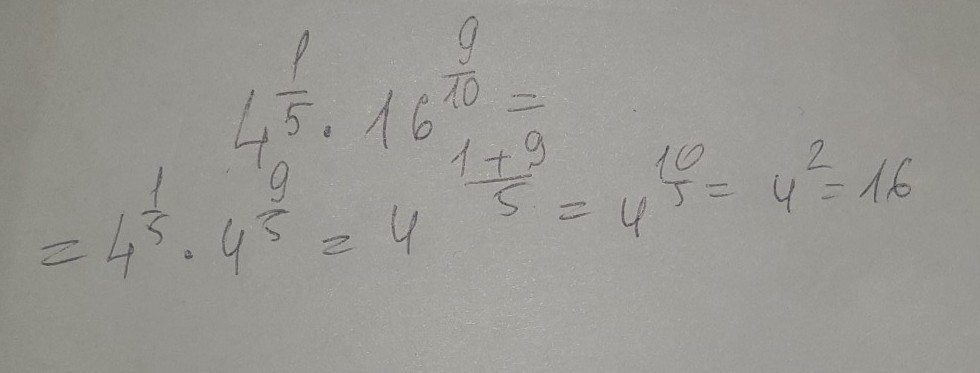 4^{\frac{1}{5}} \cdot 16^{\frac{9}{10}} =
= 4^{\frac{1}{5}} \cdot 4^{\frac{9}{5}} = 4^{\frac{1+9}{5}} = 4^{\frac{10}{5}} = 4^{2} = 16